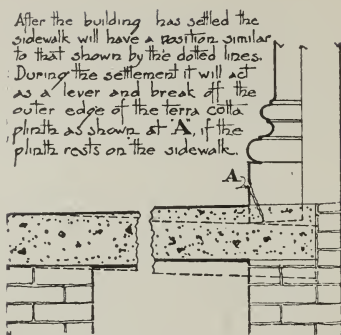 After the building has settled the
sidewalk will have a position similar
to that shown by the dotted lines.
During the settlement it will act
as a lever and break off the
outer edge of the terra cotta
plinth as shown at "A", if the
plinth rests on the sidewalk.
A